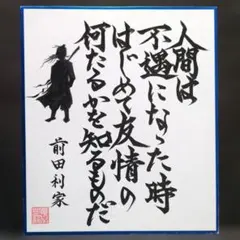 人間は
不遇になった時
はじめて友情の
何たるかを知るものだ
前田利家